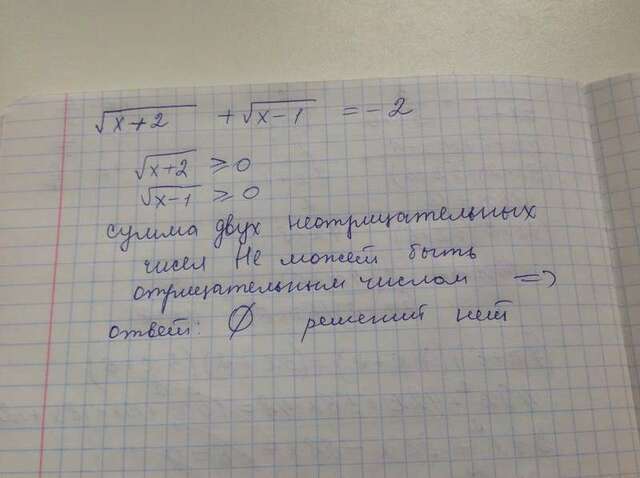 √(x+2) + √(x-1) = -2
√(x+2) ⩾ 0
√(x-1) ⩾ 0
сумма двух неотрицательных
чисел не может быть
отрицательным числом =>
ответ: ∅ решений нет